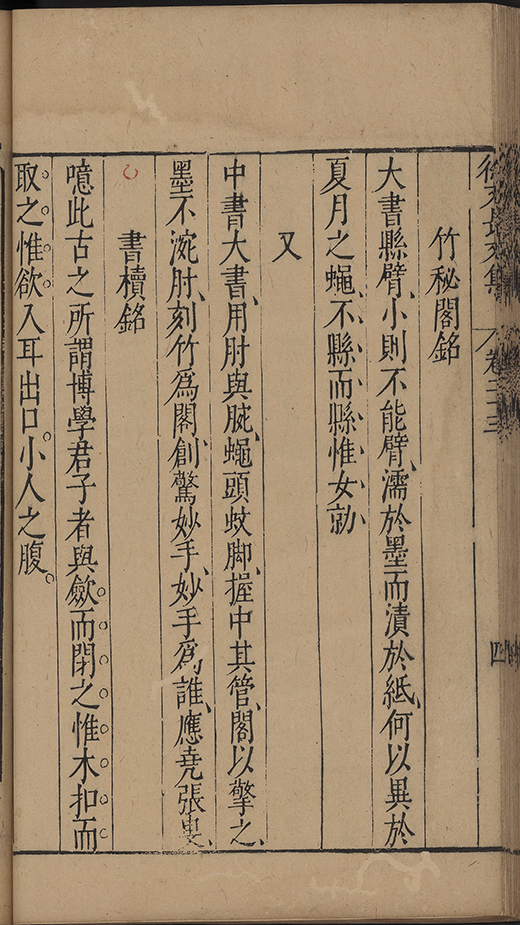 徐文長文集 卷二十三 四
竹秘閣銘
大書縣臂、小則不能臂、濡於墨而漬於紙、何以異於
夏月之蠅、不縣而縣、惟女勛
又
中書大書、用肘與腕、蠅頭蚊脚、握中其管、閣以擎之、
墨不涴肘、刻竹爲閣、創驚妙手、妙手爲誰、應堯張叟、
書櫝銘
噫此古之所謂博學君子者與斂而閉之惟木扣而
取之惟欲入耳出口小人之腹